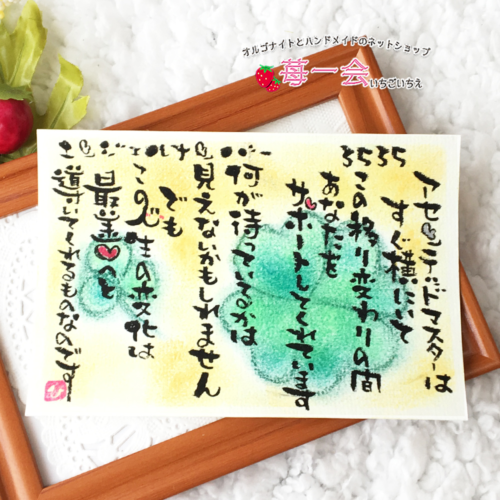 オルゴナイトとハンドメイドのネットショップ
苺一会 いちごいちえ
エンジェルナンバー 3535
アセンデッドマスターは
すぐ横にいて
この移り変わりの間
あなたを
サポートしてくれています
何が待っているかは
見えないかもしれません
でも
この人生の変化は
最善のと
導いてくれるものなのです